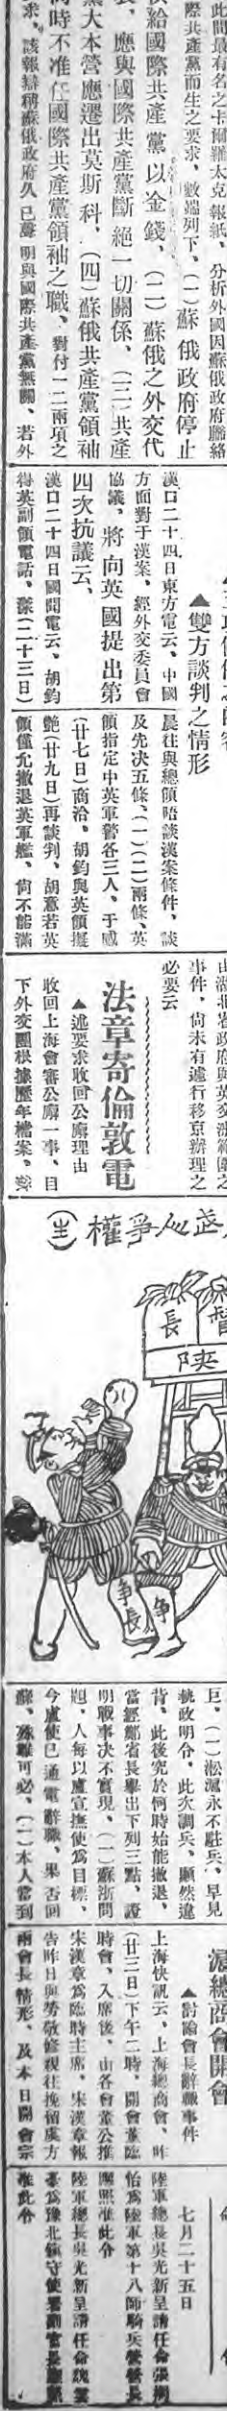 此間最有名之卡爾維太克報紙、分析外國因蘇俄政府聯絡
際共產黨而生之要求、數端列下、(一)蘇俄政府停止
供給國際共產黨以金錢、(二)蘇俄之外交代
表、應與國際共產黨斷絕一切關係、(三)共產
黨大本營應遷出莫斯科、(四)蘇俄共產黨領袖
同時不准任國際共產黨領袖之職、對付一二兩項之
求、該報辯稱蘇俄政府久已聲明與國際共產黨無關、若外
▲雙方談判之情形
漢口二十四日東方電云、中國
方面對于漢案、經外交委員會
協議、將向英國提出第
四次抗議云、
漢口二十四日國聞電云、胡鈞
得英副領電話、漾(二十三日)
晨往與總領晤談漢案條件、談
及先決五條、(一)(二)兩條、英
領指定中英軍警各三人、于感
(廿七日)商洽、胡鈞與英領擬
艷(廿九日)再談判、胡意若英
領僅允撤退英軍艦、尚不能滿
事件、尚未有遽行移京辦理之
必要云
法章寄倫敦電
▲述要求收回公廨理由
收回上海會審公廨一事、目
下外交團根據歷年檔案、
武人爭權(生)
督
長
陝
爭
爭長
巨、(一)淞滬永不駐兵、早見
執政明令、此次調兵、顯然違
背、此後究於何時始能撤退、
當經鄭省長舉出下列三點、證
明戰事決不實現、(一)蘇浙問
題、人每以盧宣撫使為目標、
今盧使已通電辭職、果否回
蘇、殊難可必、(一)本人當到
滬總商會開會
▲討論會長辭職事件
上海快訊云、上海總商會、昨
(廿三日)下午二時、開會董臨
時會、入席後、由各會董公推
宋漢章為臨時主席、宋漢章報
告昨日與勞敬修親往挽留虞方
兩會長情形、及本日開會宗
七月二十五日
陸軍總長吳光新呈請任命張
為陸軍第十八師騎兵營營長
照准此令
陸軍總長吳光新呈請任命魏
為豫北鎮守使署副官長應照
准此令